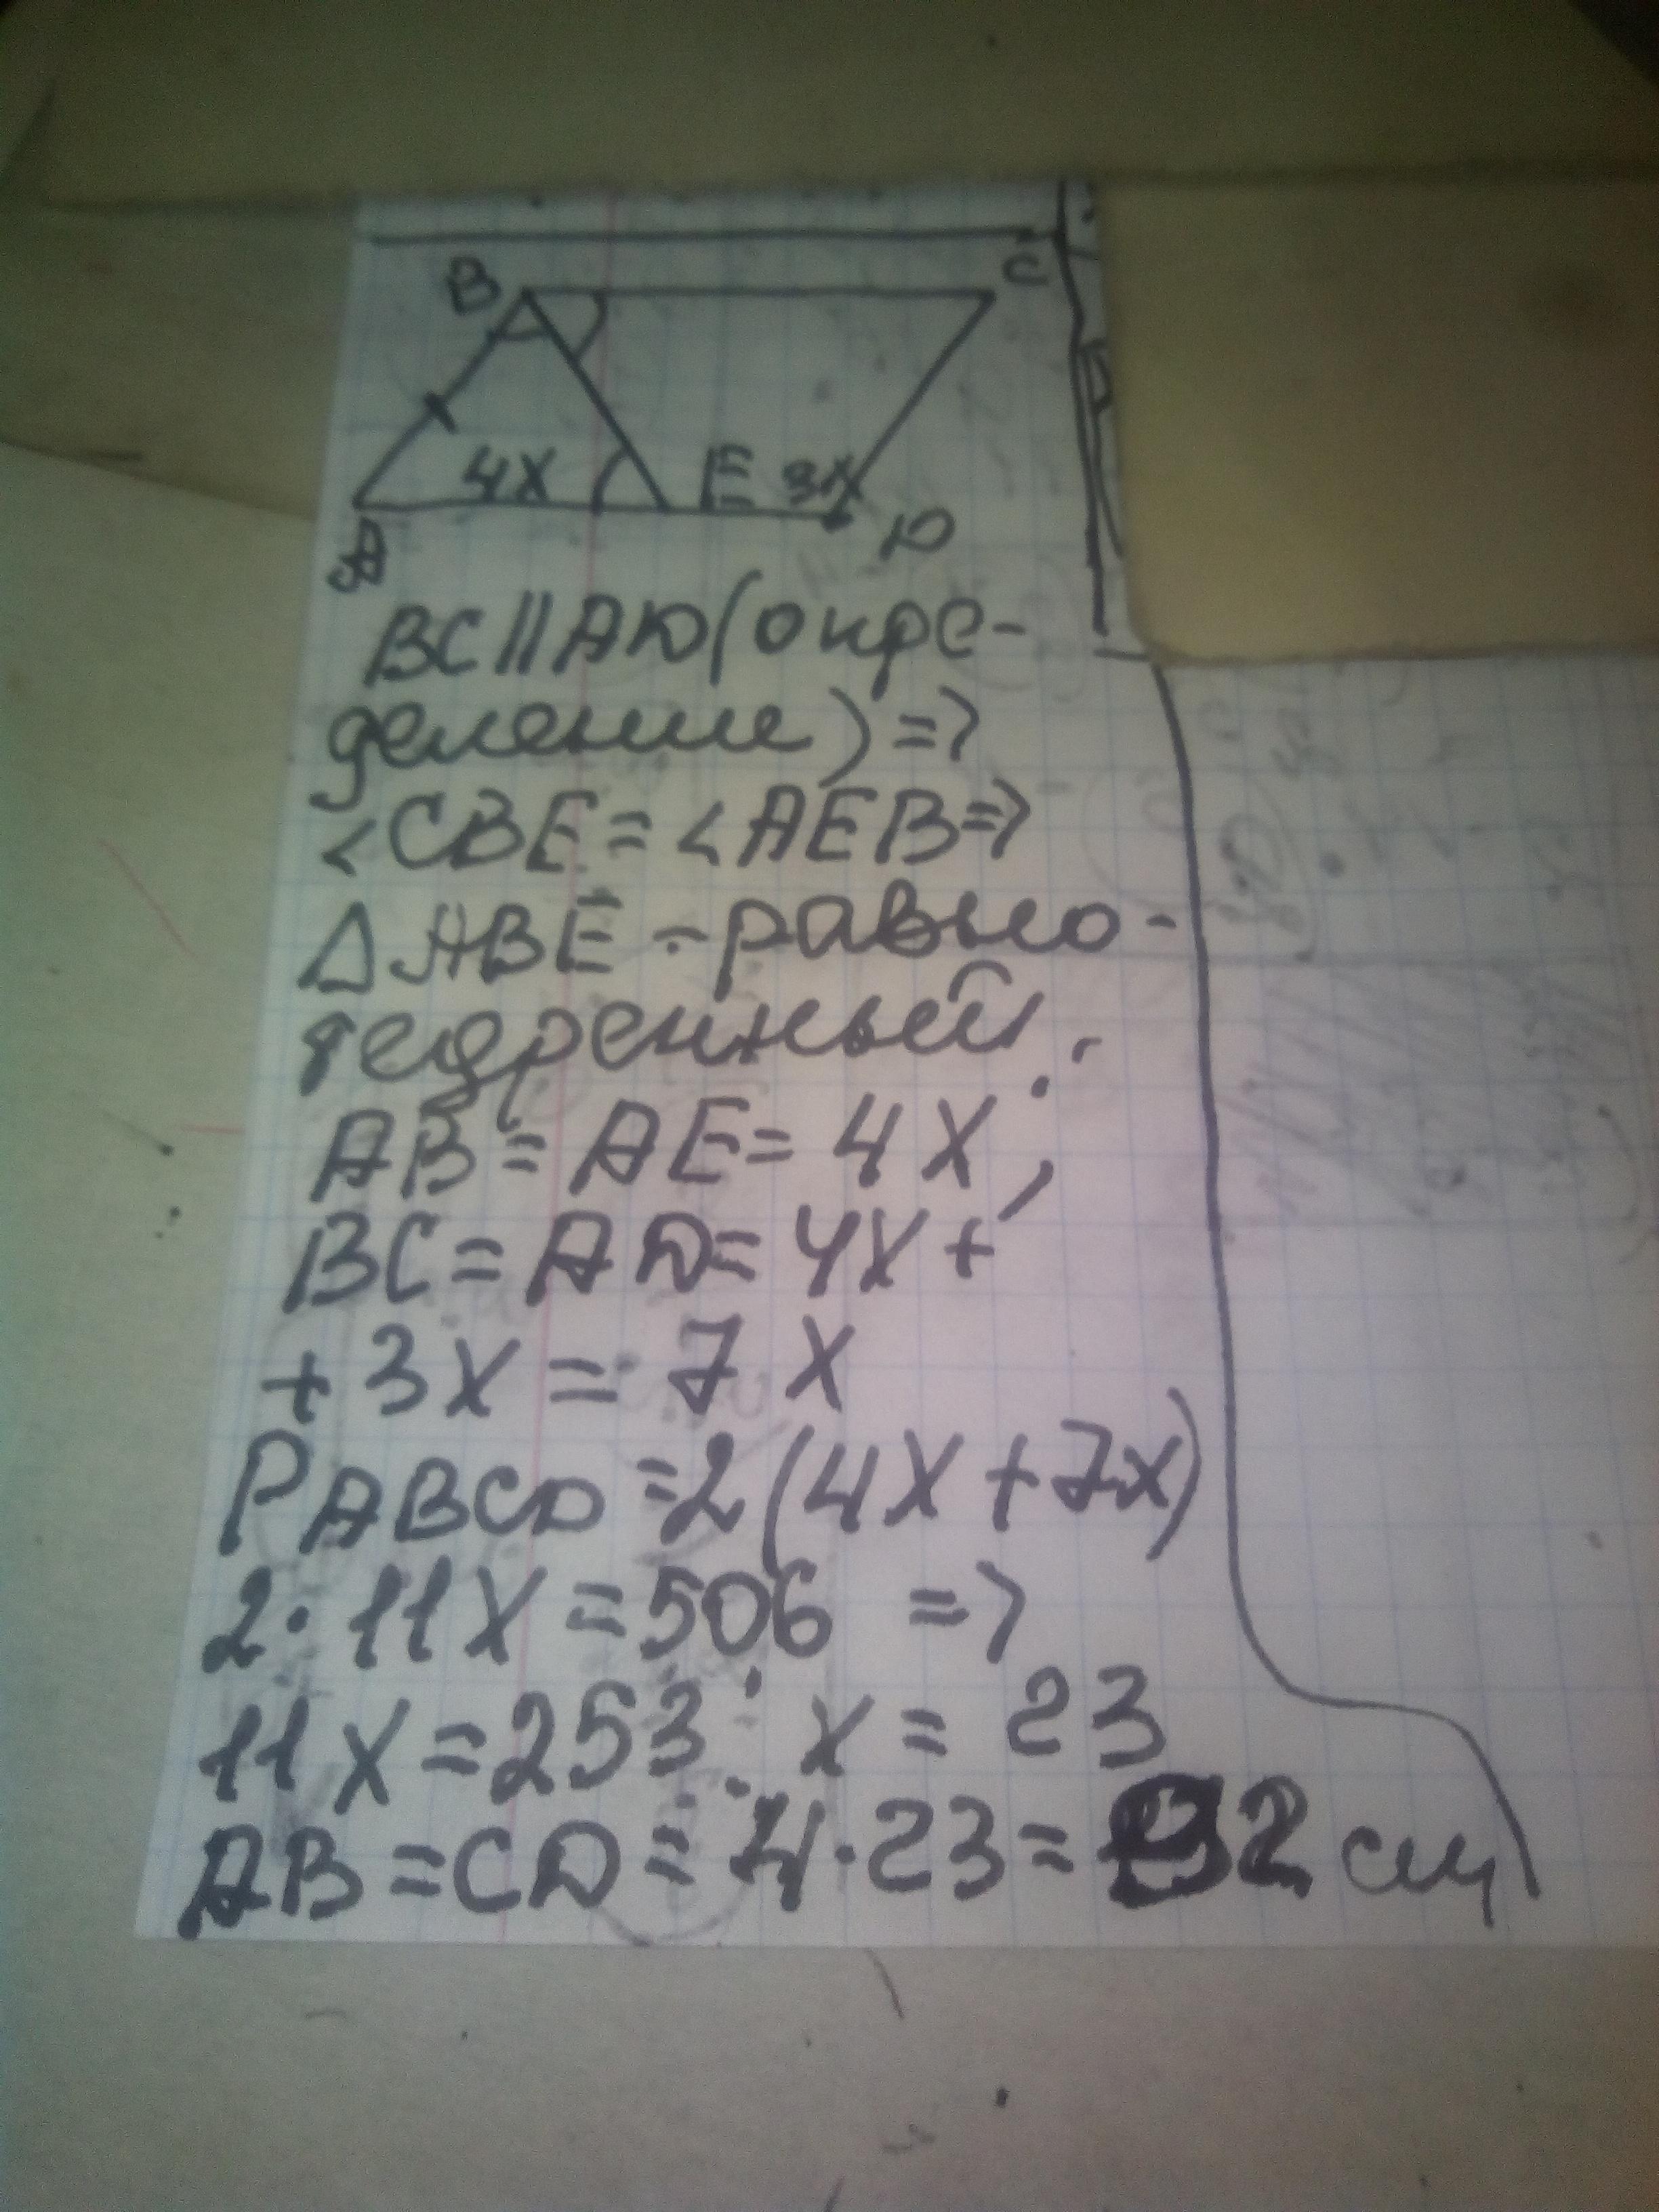 B
C
4X
E
3X
A
D
BC||AD(опре-
деление) =>
<CBE = <AEB =>
△ABE - равно-
бедренный;
AB = AE = 4X;
BC = AD = 4X +
+ 3X = 7X
PABCD = 2(4X + 7X)
2·11X = 506 =>
11X = 253; X = 23
AB = CD = 4·23 = 92 см